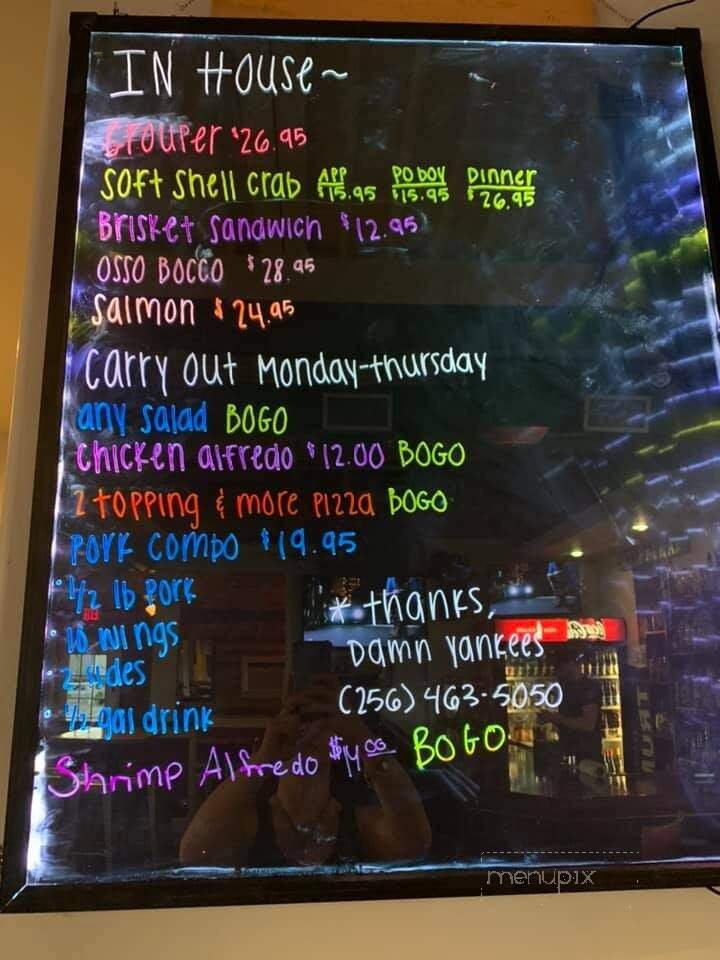 IN House~
Grouper $26.95
Soft Shell Crab APP $15.95 PO BOY $15.95 Dinner $26.95
Brisket Sandwich $12.95
OSSO BOCCO $28.95
Salmon $24.95
Carry out Monday-thursday
any salad BOGO
Chicken alfredo $12.00 BOGO
2 topping & more Pizza BOGO
Pork combo $19.95
• 1/2 lb Pork
• 10 wings
• 2 sides
• 1/2 gal drink
* thanks,
Damn Yankees
(256) 463-5050
Shrimp Alfredo $14.00 BOGO
menupix